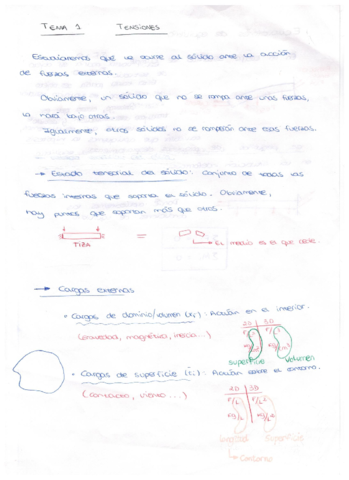 TEMA 1 TENSIONES
Estudiaremos que le ocurre al sólido ante la acción
de fuerzas externas.
Obviamente, un sólido que no se rompa ante unas fuerzas,
lo hará bajo otras.
Igualmente, otros sólidos no se romperán ante esas fuerzas.
→ Estado tensional del sólido: Conjunto de todas las
fuerzas internas que soporta el sólido. Obviamente,
hay puntos que soportan más que otros.
TIZA = → En medio es el que cede.
→ Cargas externas
• Cargas de dominio/volumen (Xi): Actúan en el interior.
(gravedad, magnético, inercia...)
2D 3D
superficie volumen
• Cargas de superficie (ti): Actúan sobre el contorno.
(contacto, viento...)
2D 3D
F/L F/L²
Longitud Superficie
→ Contorno